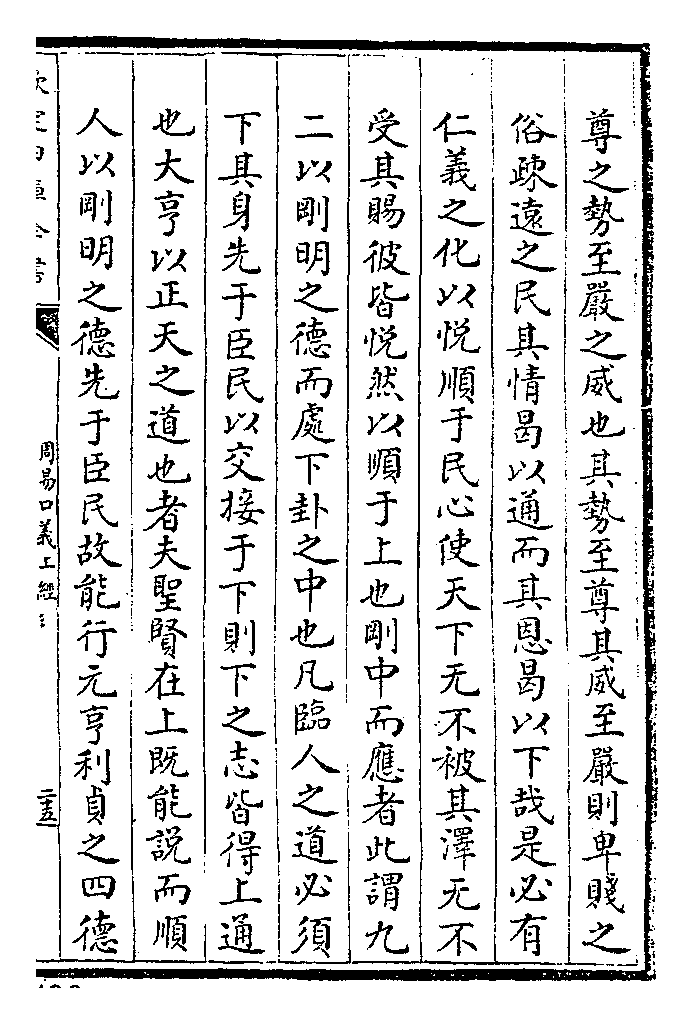 尊之勢至嚴之威也其勢至尊其威至嚴則卑賤之
俗疎遠之民其情曷以通而其恩曷以下哉是必有
仁義之化以悅順于民心使天下无不被其澤无不
受其賜彼皆悅然以順于上也剛中而應者此謂九
二以剛明之德而處下卦之中也凡臨人之道必須
下其身先于臣民以交接于下則下之志皆得上通
也大亨以正天之道也者夫聖賢在上既能說而順
人以剛明之德先于臣民故能行元亨利貞之四德
欽定四庫全書
周易口義上經